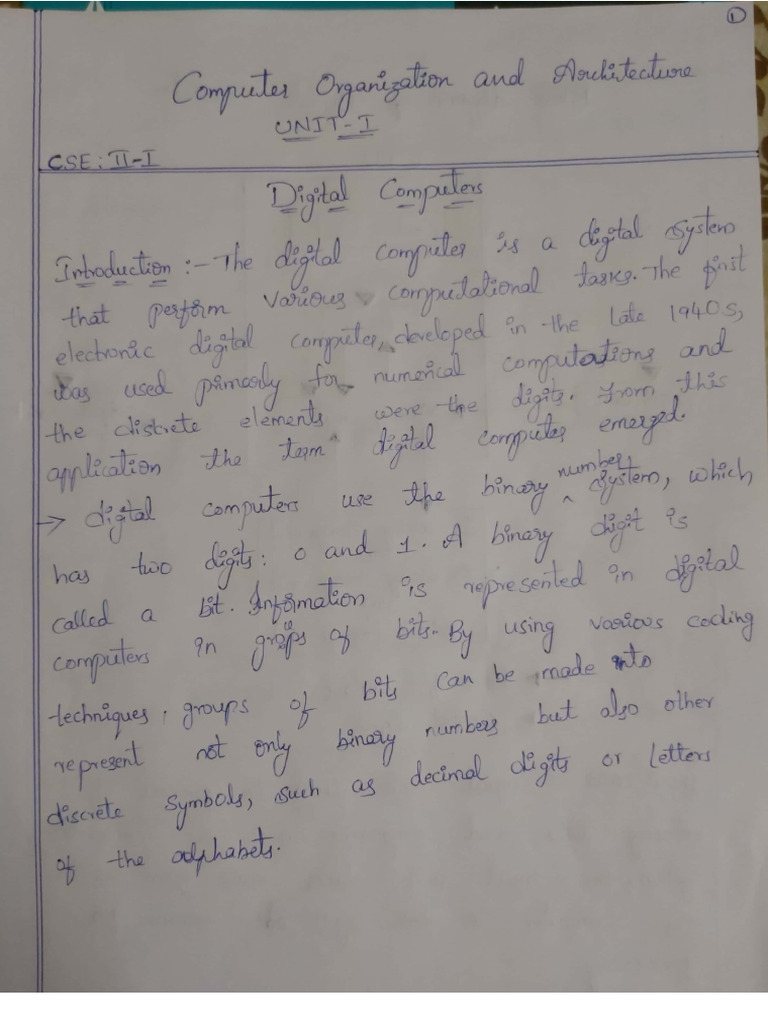 1
Computer Organization and Architecture
UNIT-I
CSE: II-I
Digital Computers
Introduction :- The digital computer is a digital system
that perform various computational tasks. The first
electronic digital computer, developed in the late 1940s,
was used primarly for numerical computations and
the discrete elements were the digits. From this
application the term digital computer emerged.
→ digital computers use the binary number system, which
has two digits: 0 and 1. A binary digit is
called a bit. Information is represented in digital
computers in groups of bits. By using various coding
techniques, groups of bits can be made into
represent not only binary numbers but also other
discrete symbols, such as decimal digits or letters
of the alphabets.